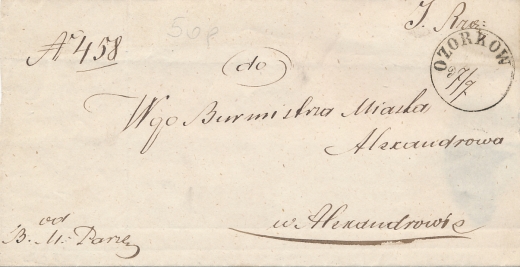 50 p
I. Rzą:
No 458
OZORKOW
27/7
do
Wgo Burmistrza Miasta
Alexandrowa
w Alexandrowie
od
B. M.